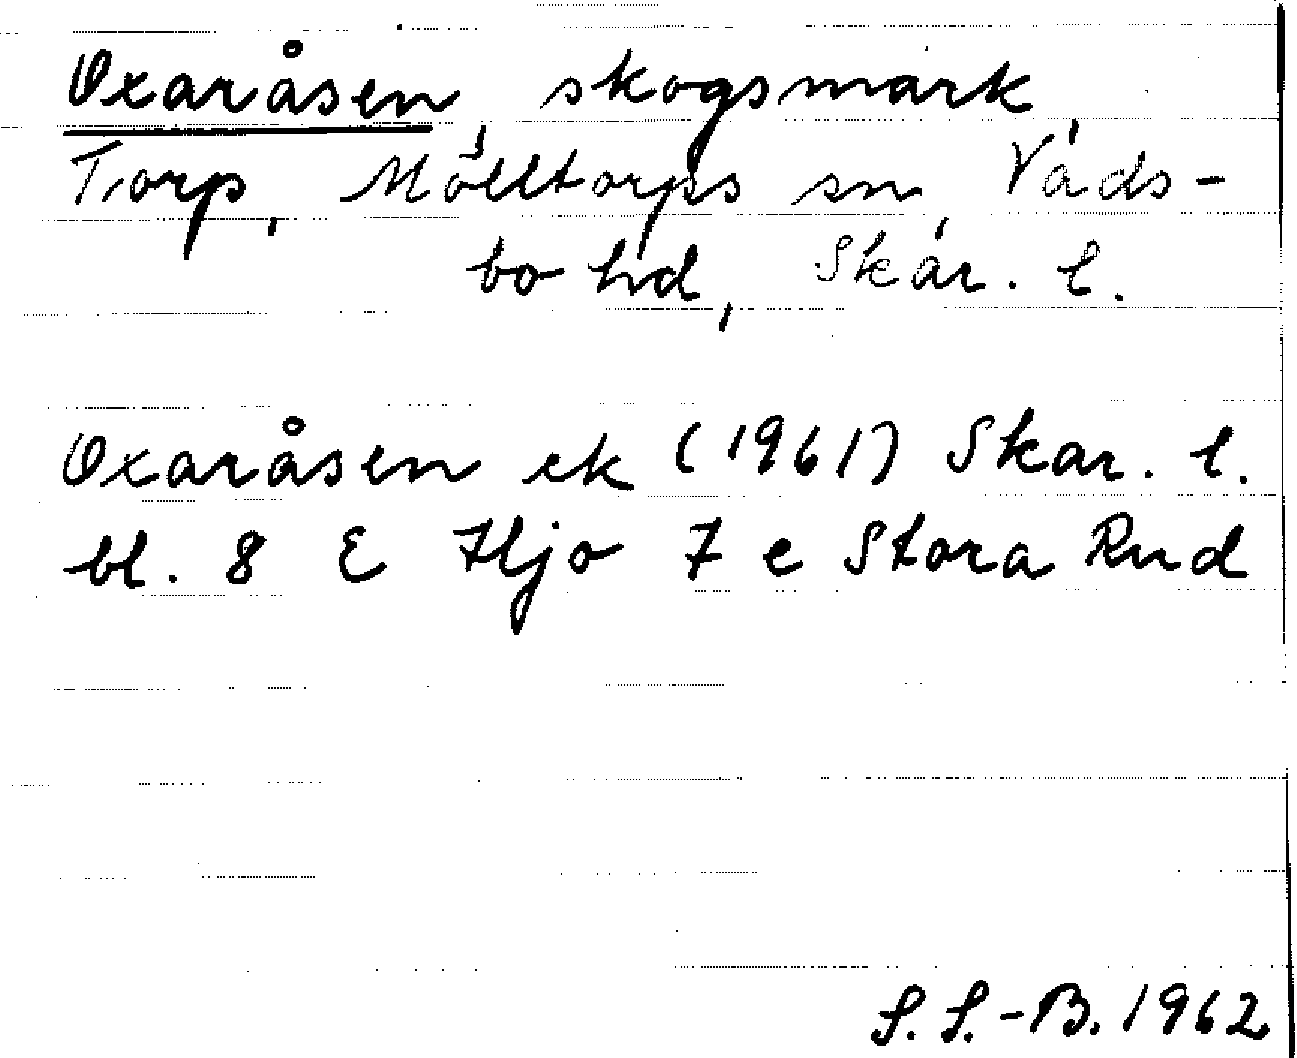 Oxaråsen, skogsmark,
Torp, Mölltorps sn, Vads-
bo hd, Skar. l.
Oxaråsen ek (1961) Skar. l.
bl. 8 E Hjo 7 e Stora Rud
S. S.-B. 1962